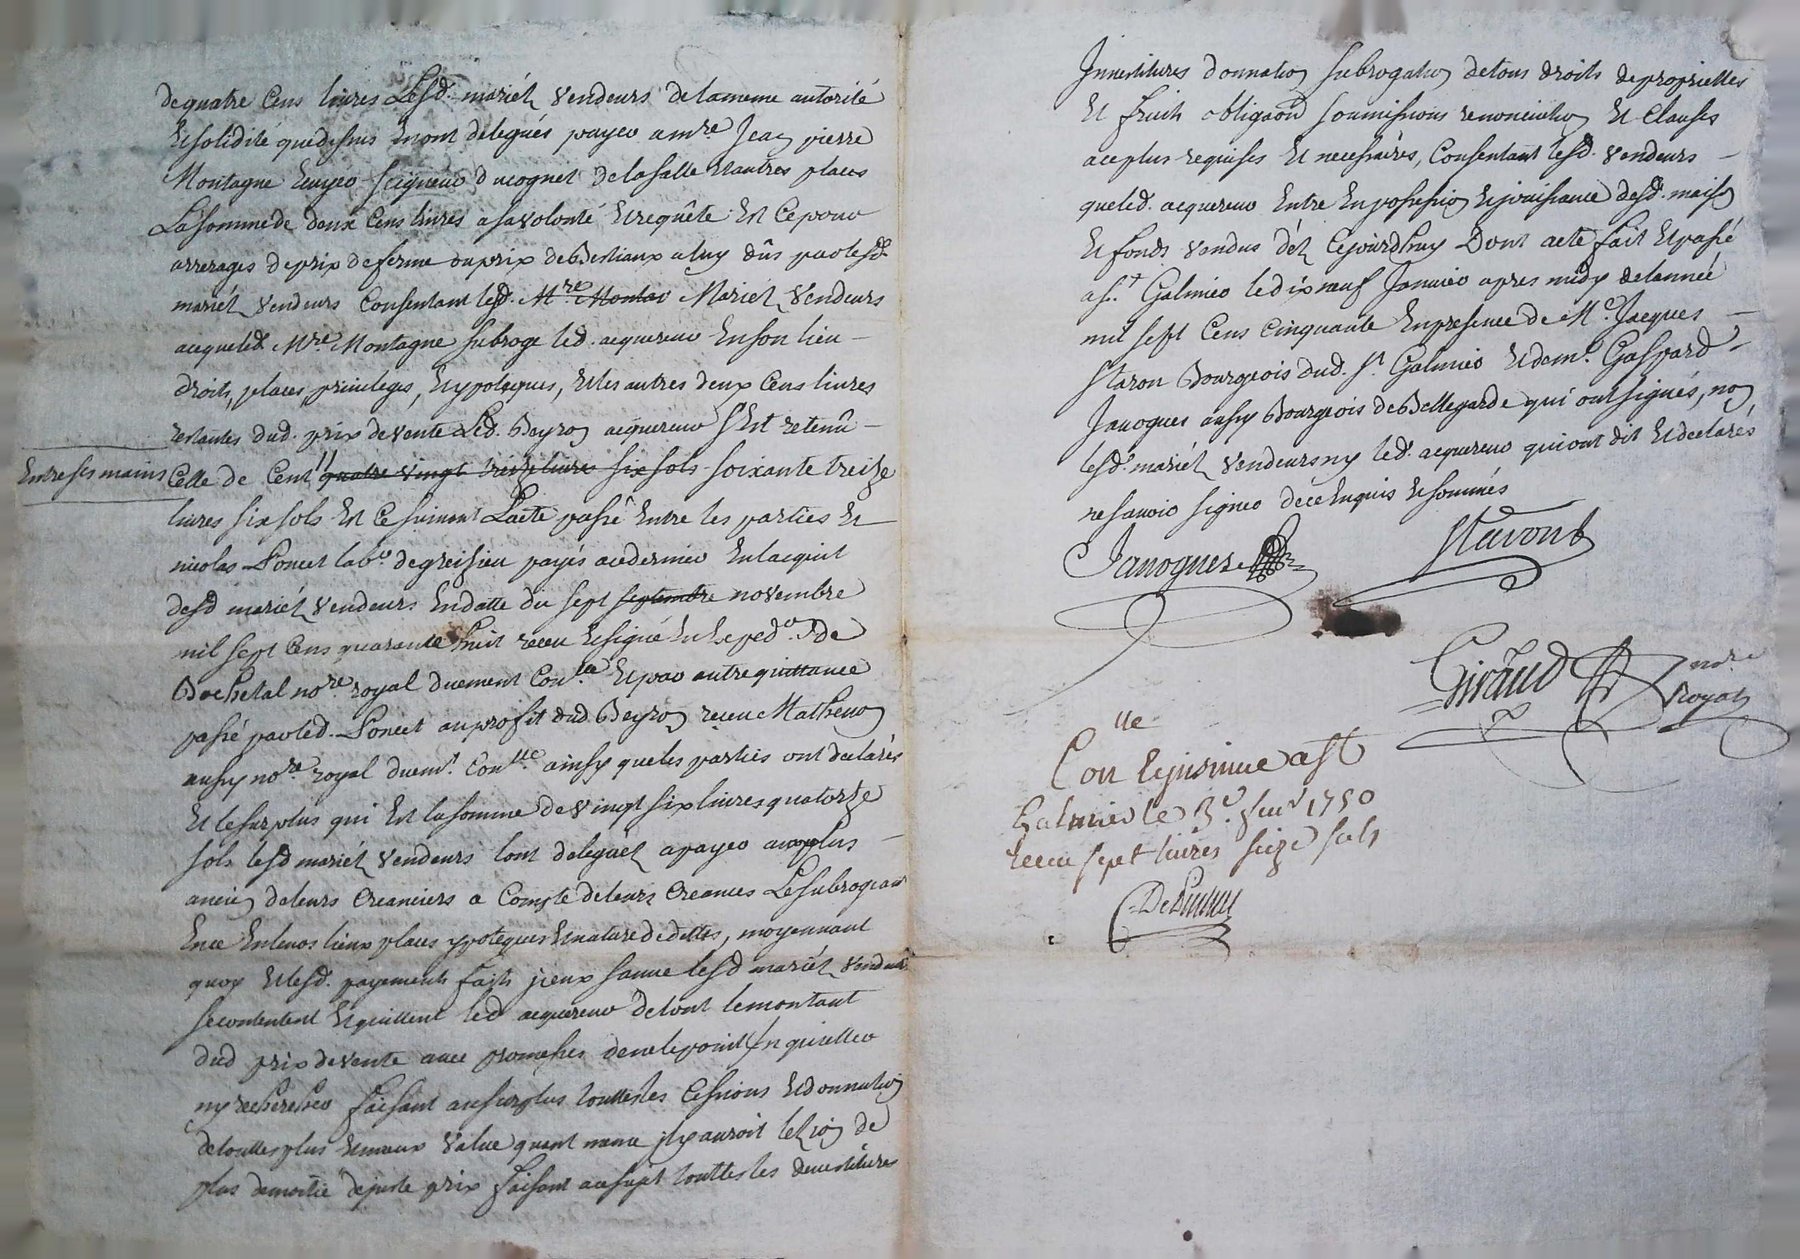 de quatre cens livres Lesd. mariés vendeurs de la meme autorité
et solidité que dessus ont delegués payer a mre Jean pierre
Montagne ecuyer seigneur de la salle et autres places
La somme de deux cens livres a sa volonté et requête et ce pour
arrerages de prix de ferme ou prix de Bestiaux a luy dûs par lesd.
mariés vendeurs consentant lesd. Mre Montar Mariés vendeurs
a ce que led. Mre Montagne subroge led. acquereur en son lieu
droits, places, privileges, hypoteques, et les autres deux cens livres
restantes dud. prix de vente Led. Beyron acquereur s'est retenû
Entre ses mains
celle de cent quatre vingt treize livres six sols soixante treize
livres six sols et ce suivant L'acte passé entre les parties et
nicolas Poncet labr. de greisieu payés a ce dernier en l'acquit
desd mariés vendeurs en datte du sept septembre novembre
mil sept cens quarante huit receu et signé en exped. de
Bochetal nore royal duement Conlée et par autre quittance
passé par led. Poncet au profit dud Beyron receu Mathevon
aussy nore royal duemt. Conllée ainsy que les parties ont declarés
et le surplus qui est la somme de vingt six livres quatorze
sols lesd mariés vendeurs l'ont delegués a payer au plus
ancien de leurs creanciers a compte de leurs creances Le subrogeant
en ce en leurs lieux places ypoteques et nature de dettes, moyennant
quoy et lesd. payements faits iceux sauve lesd mariés vendeurs
se contentent et quittent led acquereur de tout le montant
dud prix de vente avec promesses de ne le point en quereller
ny rechercher faisant au surplus touttes les cessions et donnation
de touttes plus et mieux value quant meme il y auroit lezion de
plus de moitié de juste prix faisant au sujet touttes les devestitures
Investitures donnation subrogation de tous droits de proprietés
et fruits obligaon soumissions renonciation et clauses
a ce plus requises et necessaires, Consentant lesd. vendeurs
que led. acquereur entre en possession et jouissance desd. maison
et fonds vendus dés cejourdhuy Dont acte fait et passé
a St. Galmier le dix neuf Janvier apres midy de l'année
mil sept cens cinquante en presence de Me. Jacques
Staron Bourgeois dud. St. Galmier et de mr. Gaspard
Janoques aussy Bourgeois de Bellegarde qui ont signés, non
lesd. mariés vendeurs ny led. acquereur qui ont dit et declarés
ne savoir signer de ce enquis et sommés
Janoques
Staron
Giraud nore
Royal
Conlle et insinué a St
Galmier le 3e. fevr 1750
receu sept livres seize sols